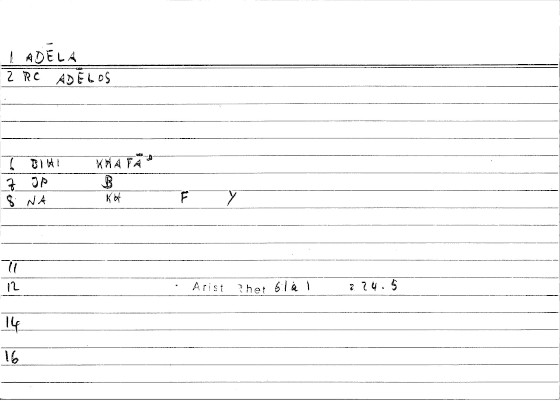 1 ADĒLA
2 RC ADĒLOS
6 BIHI KHAFĀ
7 JP B
8 NA KH F Y
11
12 Arist Rhet 61a1 : 24.5
14
16